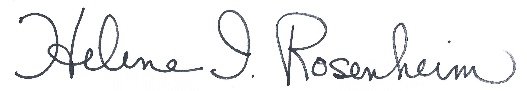 Helene I. Rosenheim